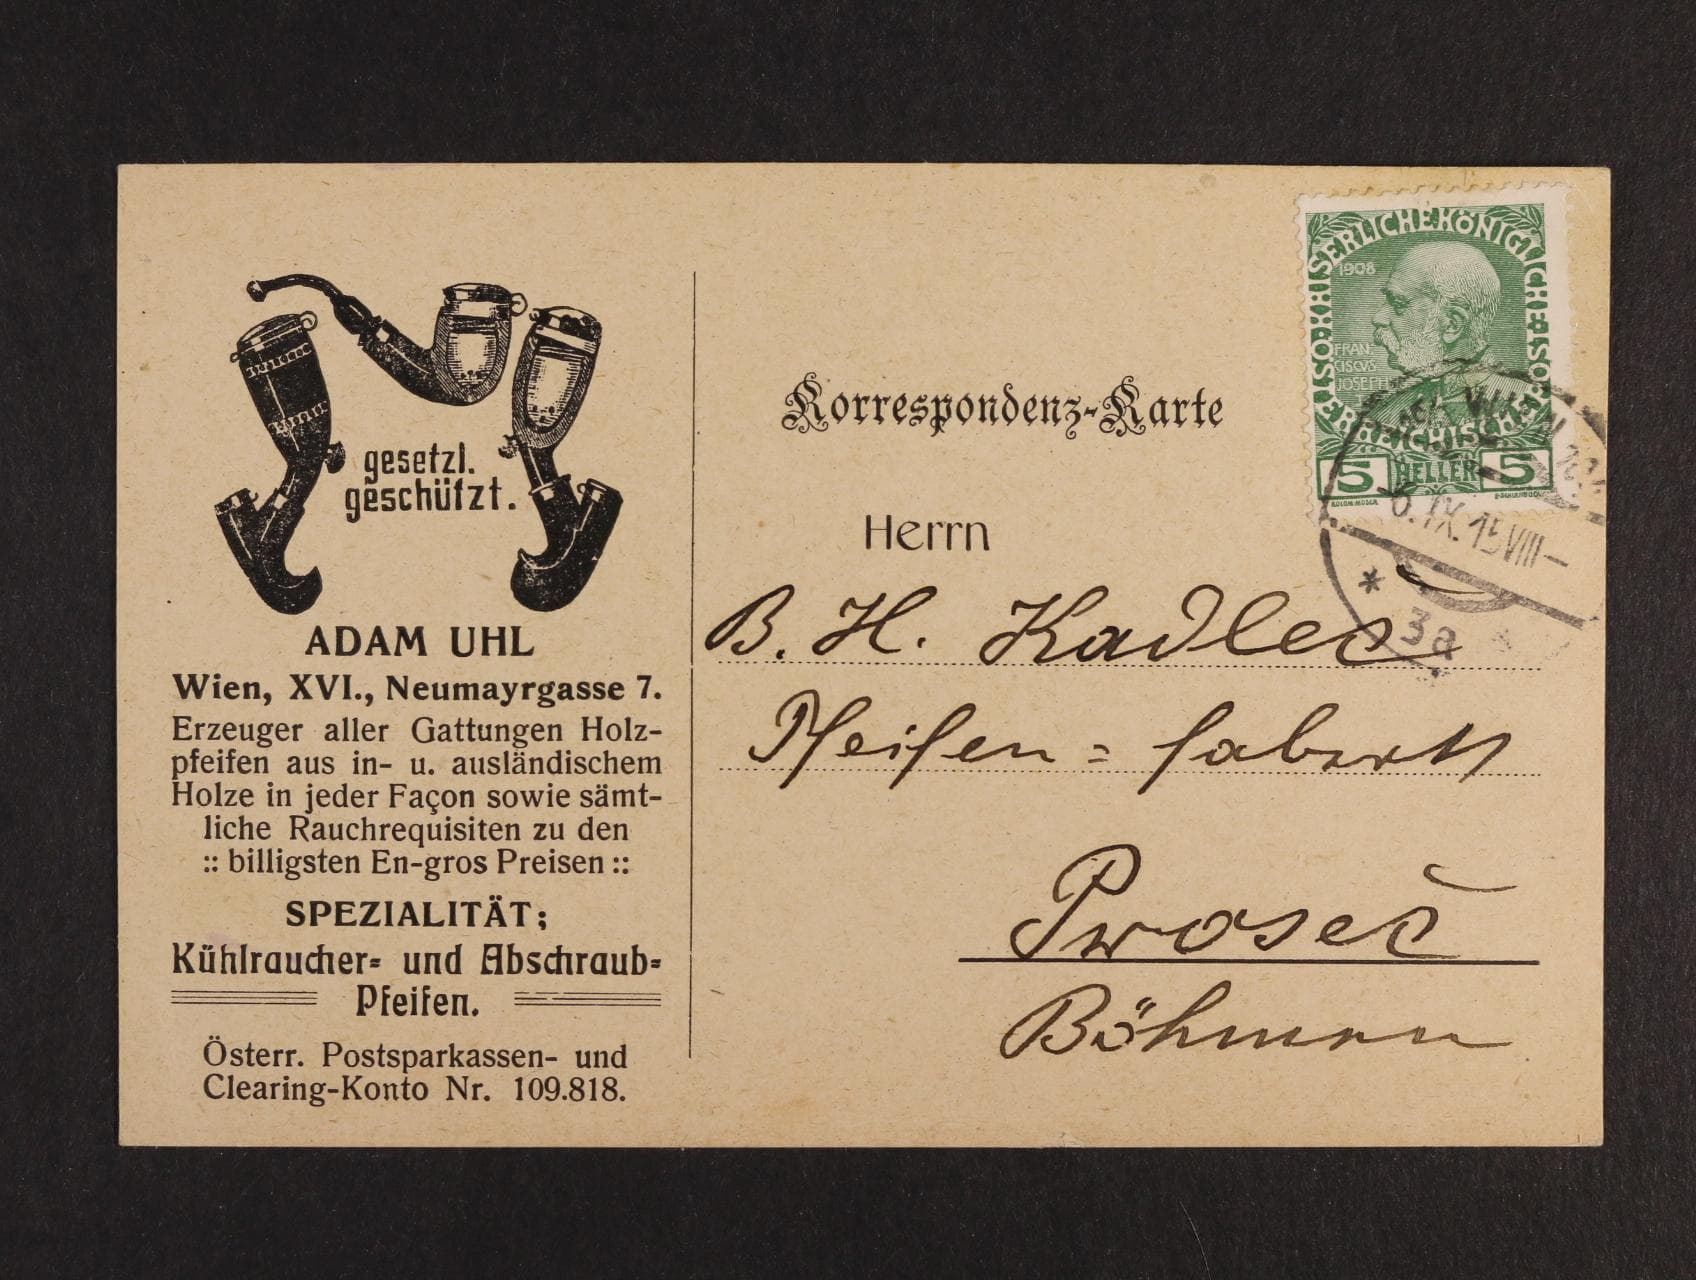 gesetzl.
geschützt.
ADAM UHL
Wien, XVI., Neumayrgasse 7.
Erzeuger aller Gattungen Holz-
pfeifen aus in- u. ausländischem
Holze in jeder Façon sowie sämt-
liche Rauchrequisiten zu den
:: billigsten En-gros Preisen ::
SPEZIALITÄT;
Kühlraucher- und Abschraub-
Pfeifen.
Österr. Postsparkassen- und
Clearing-Konto Nr. 109.818.
Korrespondenz-Karte
Herrn
B. H. Kadlec
Pfeifen =
Proseč
Böhmen
KAISERLICHE KÖNIGLICHE
ÖSTERREICHISCHE
1908
FRAN
CISCVS
IOSEPH
5 HELLER 5
KOLOM. MOSER
WIEN
6. IX. 15 VIII
* 3a